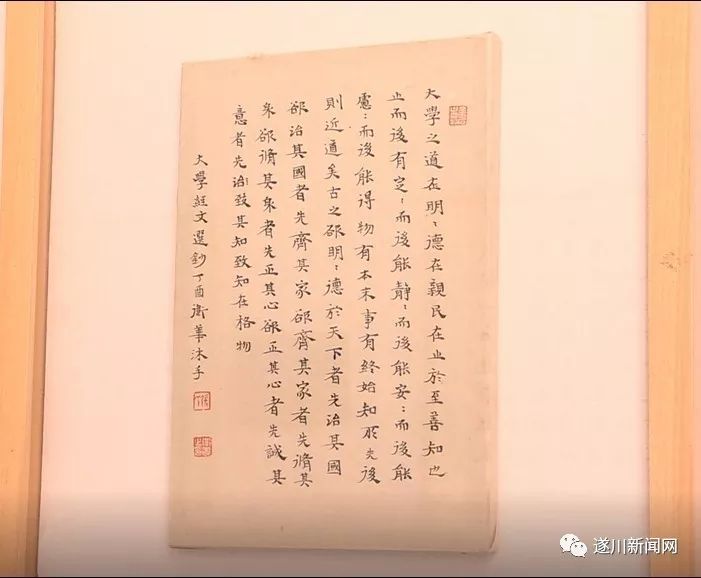 大學之道在明：德在親民在止於至善知也
止而後有定：而後能靜：而後能安：而後能
慮：而後能得物有本末事有終始知所先後
則近道矣古之欲明：德於天下者先治其國
欲治其國者先齊其家欲齊其家者先脩其
身欲脩其身者先正其心欲正其心者先誠其
意者先治致其知致知在格物
大學經文選鈔丁酉衛華沐手
遂川新闻网